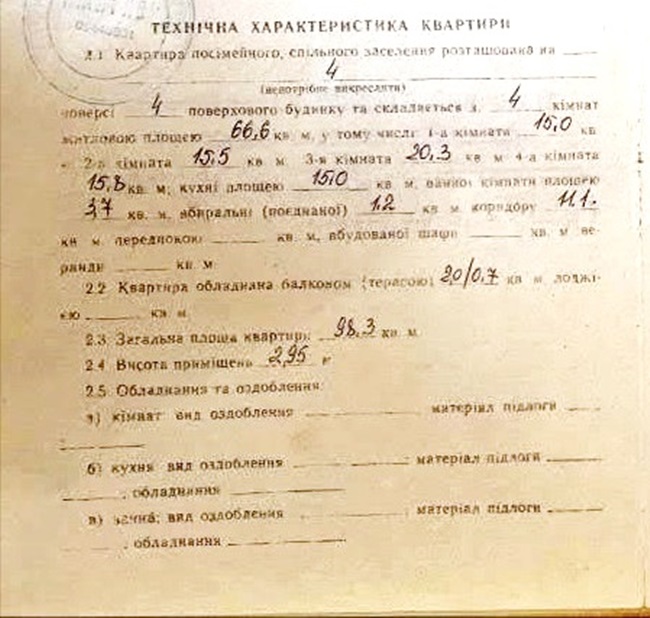 ТЕХНІЧНА ХАРАКТЕРИСТИКА КВАРТИРИ
2.1 Квартира посімейного, спільного заселення розташована на
4
(непотрібне викреслити)
поверсі 4 поверхового будинку та складається з 4 кімнат
житловою площею 66,6 кв м, у тому числі 1-а кімната 15,0 кв
м 2-а кімната 15,5 кв м 3-я кімната 20,3 кв м 4-а кімната
15,8 кв м; кухні площею 15,0 кв м, ванної кімнати площею
3,7 кв м, вбиральні (поєднаної) 1,2 кв м коридору 11,1.
кв м передпокою кв м, вбудованої шафи кв м ве-
ранди кв м
2.2 Квартира обладнана балконом (терасою) 2,0/0,7 кв м лоджі-
єю кв м
2.3 Загальна площа квартири 98,3 кв м
2.4 Висота приміщень 2,95 м
2.5 Обладнання та оздоблення
а) кімнат вид оздоблення матеріал підлоги
б) кухня вид оздоблення ; матеріал підлоги
, обладнання
в) ванна; вид оздоблення ; матеріал підлоги
, обладнання